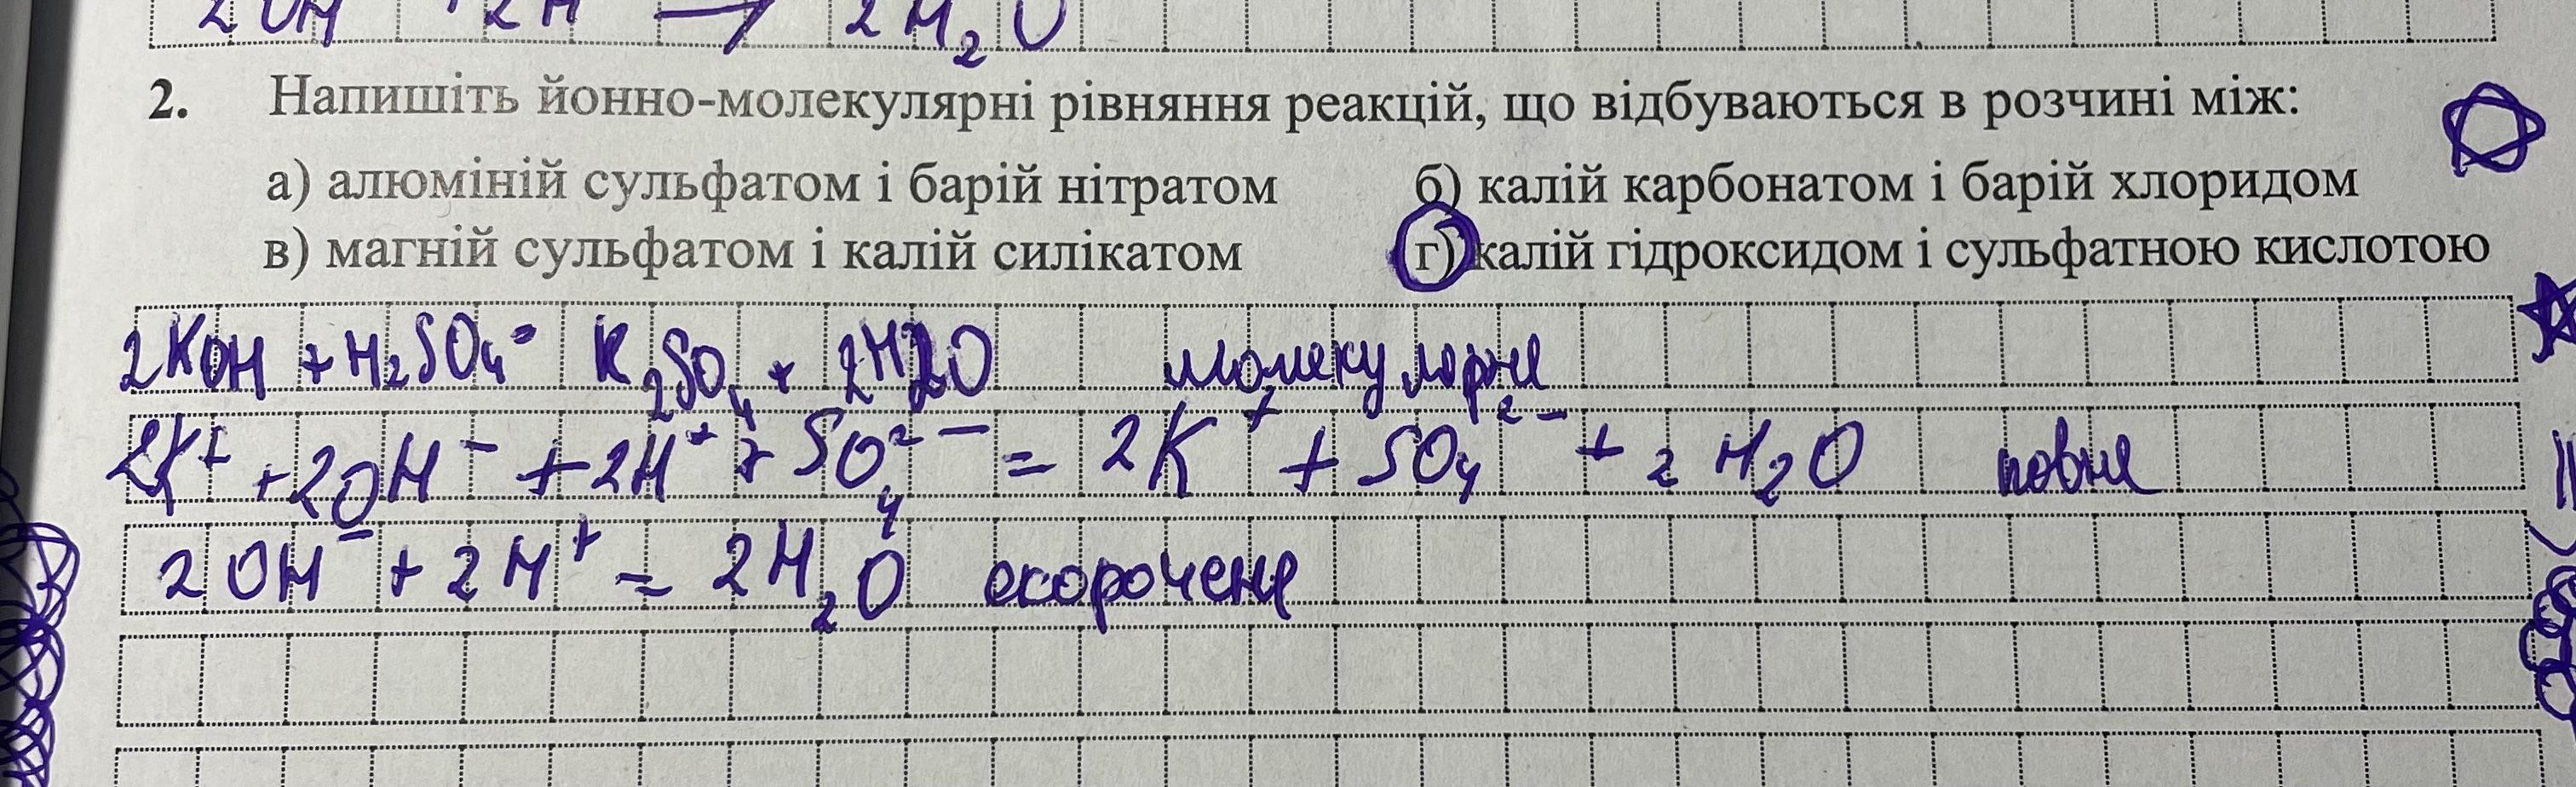 2OH + 2H → 2H₂O
2. Напишіть йонно-молекулярні рівняння реакцій, що відбуваються в розчині між:
а) алюміній сульфатом і барій нітратом б) калій карбонатом і барій хлоридом
в) магній сульфатом і калій силікатом г) калій гідроксидом і сульфатною кислотою
2KOH + H₂SO₄ = K₂SO₄ + 2H2O молекулярне
2K⁺ + 2OH⁻ + 2H⁺ + SO₄²⁻ = 2K⁺ + SO₄²⁻ + 2H₂O повне
2OH⁻ + 2H⁺ = 2H₂O скорочене